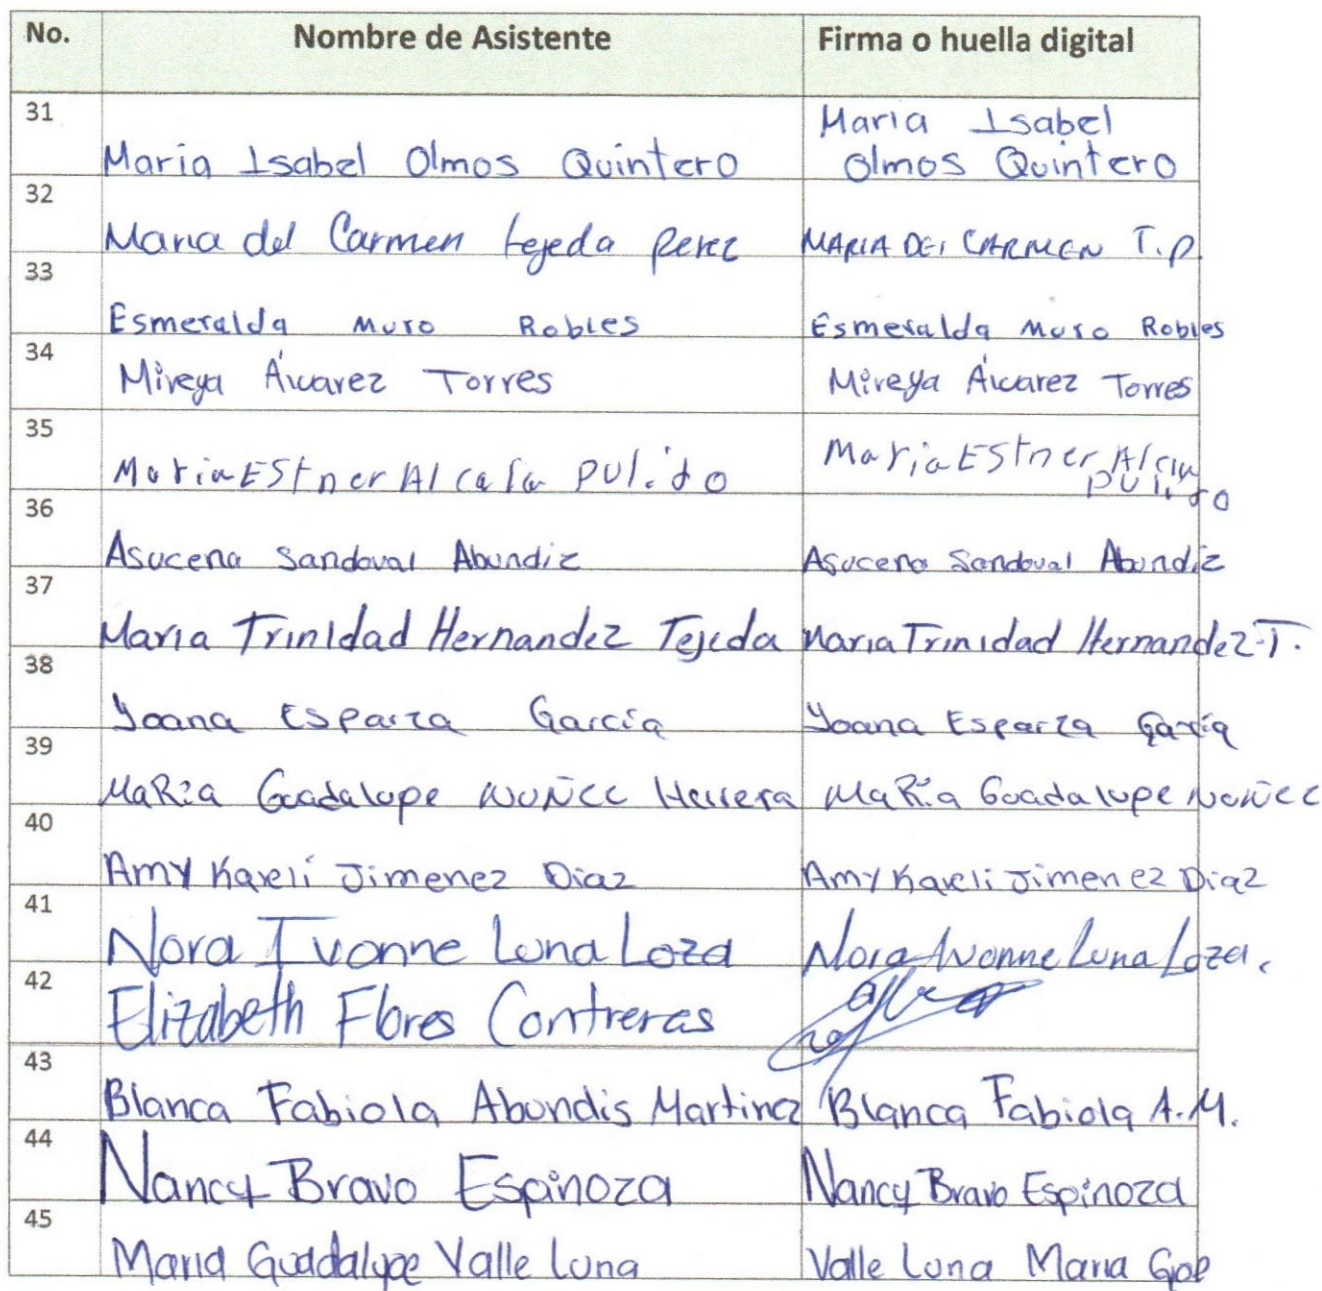 No. Nombre de Asistente Firma o huella digital
31 Maria Isabel Olmos Quintero Maria Isabel
Olmos Quintero
32 Maria del Carmen tejeda perez MARIA DEl CARMEN T.P.
33 Esmeralda Muro Robles Esmeralda Muro Robles
34 Mireya Álvarez Torres Mireya Álvarez Torres
35 Maria ESther Alcala PULido Maria ESther
PULido
36 Asucena Sandoval Abundiz Asucena Sandoval Abundiz
37 Maria Trinidad Hernandez Tejeda Maria Trinidad Hernandez T.
38 Yoana Esparza García Yoana Esparza García
39 MaRia Guadalupe NUÑEZ Herrera MaRia Guadalupe NUÑEZ
40 Amy Kareli Jimenez Diaz Amy Kareli Jimenez Diaz
41 Nora Ivonne Luna Loza Nora Ivonne Luna Loza.
42 Elizabeth Flores Contreras
43 Blanca Fabiola Abundis Martinez Blanca Fabiola A.M.
44 Nancy Bravo Espinoza Nancy Bravo Espinoza
45 Maria Guadalupe Valle Luna Valle Luna Maria Gpe